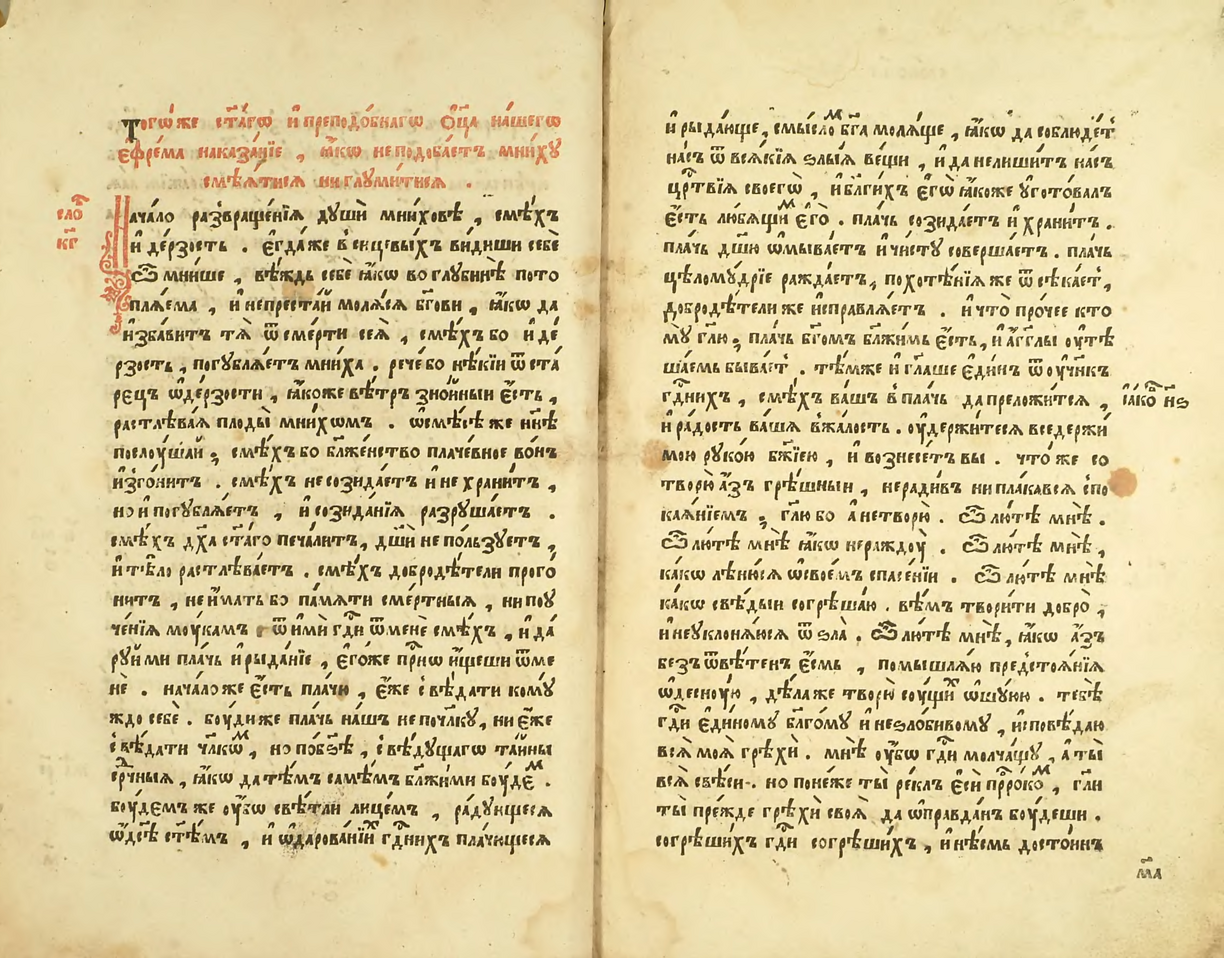 Тогѡ́же ст҃а́гѡ и҆ преподо́бнагѡ Ѻ҆ц҃а̀ на́шегѡ
є҆фре́ма наказа́нїе , ꙗ҆́кѡ неподоба́етъ мни́хꙋ
смѣѧ́тисѧ ни глꙋми́тисѧ .
сло́
кг
Нача́ло развраще́нїѧ дꙋшѝ мни́ховѣ , смѣ́хъ
и҆ де́рзость . є҆гда́же в си́цевыхъ ви́диши себѐ
Ѽ мни́ше , вѣ́ждь себѐ ꙗ҆́кѡ во глꙋбинѣ̀ пото
плѧ́ема , и҆ непреста́й молѧ́сѧ бг҃ови , ꙗ҆́кѡ да
и҆зба́витъ тѧ̀ ѿ сме́рти сеѧ̀ , смѣ́хъ бо и҆ де́
рзость , погꙋблѧ́етъ мни́ха . рече́ бо нѣ́кїи ѿ ста́
рецъ ѡ҆де́рзости , ꙗ҆́коже вѣ́тръ зно́йныи є҆́сть ,
растлѣва́ѧ плоды̀ мни́хѡмъ . ѡ҆смѣ́сѣ же ны́нѣ
послоу́шай ; смѣ́хъ бо бл҃же́нство плаче́вное во́нъ
и҆зго́нитъ . смѣ́хъ несозида́етъ и҆ не храни́тъ ,
но и҆ погꙋблѧ́етъ , и҆ созида́нїѧ разрꙋша́етъ .
смѣ́хъ дх҃а ст҃а́го печа́литъ , дш҃и не по́льзꙋетъ ,
и҆ тѣ́ло растлѣва́етъ . смѣ́хъ добродѣ́тели прого́
нитъ , не и҆́мать бо па́мѧти сме́ртныѧ , ни поꙋ
че́нїѧ моу́камъ . ѿ и҆мѝ гд҃и ѿ менѐ смѣ́хъ , и҆ да́
рꙋй ми пла́чь и҆ рыда́нїе , є҆го́же прⷭ҇нѡ и҆́щеши ѿ ме
нѐ . нача́ло же є҆́сть пла́чю , є҆́же свѣ́дати комꙋ́
ждо себѐ . бꙋ́ди же пла́чь на́шъ не по члк҃ꙋ , ни є҆́же
свѣ́дати чл҃кѡⷨ , но по бз҃ѣ , свѣ́дꙋщагѡ та́йны
срⷣчныѧ , ꙗ҆́кѡ да тѣ́мъ самѣ́мъ бл҃жими боу́деⷨ .
боу́демъ же оу҆́бѡ свѣ́тли лице́мъ , ра́дꙋющесѧ
ѡ҆ дс҃ѣ ст҃ѣмъ , и҆ ѡ҆ дарова́нїиⷯ гдⷭ҇нихъ пла́чющесѧ
и҆ рыда́юще , смы́сло бг҃а молѧ́ще , ꙗ҆́кѡ да соблюде́т
на́съ ѿ всѧ́кїѧ ѕлы́ѧ ве́щи , и҆ да нелиши́тъ на́съ
црⷭ҇твїѧ своегѡ̀ , и҆ бл҃ги́хъ є҆гѡ̀ ꙗ҆́коже ᲂу҆гото́валъ
є҆́сть лю́бѧщиⷨ є҆го̀ . пла́чь созида́етъ и҆ храни́тъ .
пла́чь дш҃и ѡ҆мыва́етъ и҆ чи́стꙋ соверша́етъ . пла́чь
цѣломꙋ́дрїе ражда́етъ , похотѣ́нїѧ же ѿсѣка́ет ,
добродѣ́тели же и҆справлѧ́етъ . и҆ что̀ про́чее кто
мꙋ̀ гл҃ю ; пла́чь бг҃омъ бл҃жи́мь є҆́сть , и҆ а҆́гг҃лы оутѣ
ша́емь быва́ет . тѣ́мже и҆ гл҃аше є҆ди́нъ ѿ оуч҃нкъ
гдⷭ҇нихъ , смѣ́хъ ва́шъ в пла́чь да преложи́тсѧ ,
и҆ ра́дость ва́шѧ в жа́лость . оу҆держи́тесѧ вседержи́
мою рꙋко́ю бж҃їею , и҆ вознесе́тъ вы̀ . что́ же со
творю̀ а҆́зъ грѣ́шныи , неради́въ ни пла́кавсѧ с по
каѧ́нїемъ ; гл҃ю бо а҆ нетворю̀ . Ѽ лю́тѣ мнѣ̀ .
Ѽ лю́тѣ мнѣ̀ ꙗ҆́кѡ неражд́оу . Ѽ лю́тѣ мнѣ̀ ,
ка́кѡ лѣню́сѧ ѡ҆свое́мъ спасе́нїи . Ѽ лю́тѣ мнѣ̀
ка́кѡ свѣ́дыи согрѣша́ю . вѣ́мъ твори́ти добро̀ ,
и҆ неꙋклонѧ́юсѧ ѿ ѕла̀ . Ѽ лю́тѣ мнѣ̀ , ꙗ҆́кѡ а҆́зъ
безъѿвѣ́тенъ є҆́смь , помышлѧ́ю предстоѧ́нїѧ
ѡ҆десноу́ю , дѣла́ же творю̀ соу́щиⷯ ѡ҆шꙋ́юю . тебѣ̀
гд҃и є҆ди́номꙋ бл҃го́мꙋ и҆ неѕло́бивомꙋ , и҆сповѣ́даю
всѧ̀ моѧ̀ грѣхѝ . мнѣ̀ оу҆́бѡ гд҃и молча́щꙋ , а҆ ты̀
всѧ̀ свѣ́си . но поне́же ты̀ ре́клъ є҆сѝ прⷪ҇ро́коⷨ , гл҃и
ты̀ пре́жде грѣхѝ своѧ̀ да ѡ҆правда́нъ боу́деши .
согрѣши́хъ гдⷭ҇и согрѣши́хъ , и҆ нѣ́смь досто́инъ
ꙗ҆ко́ нѕ
ма